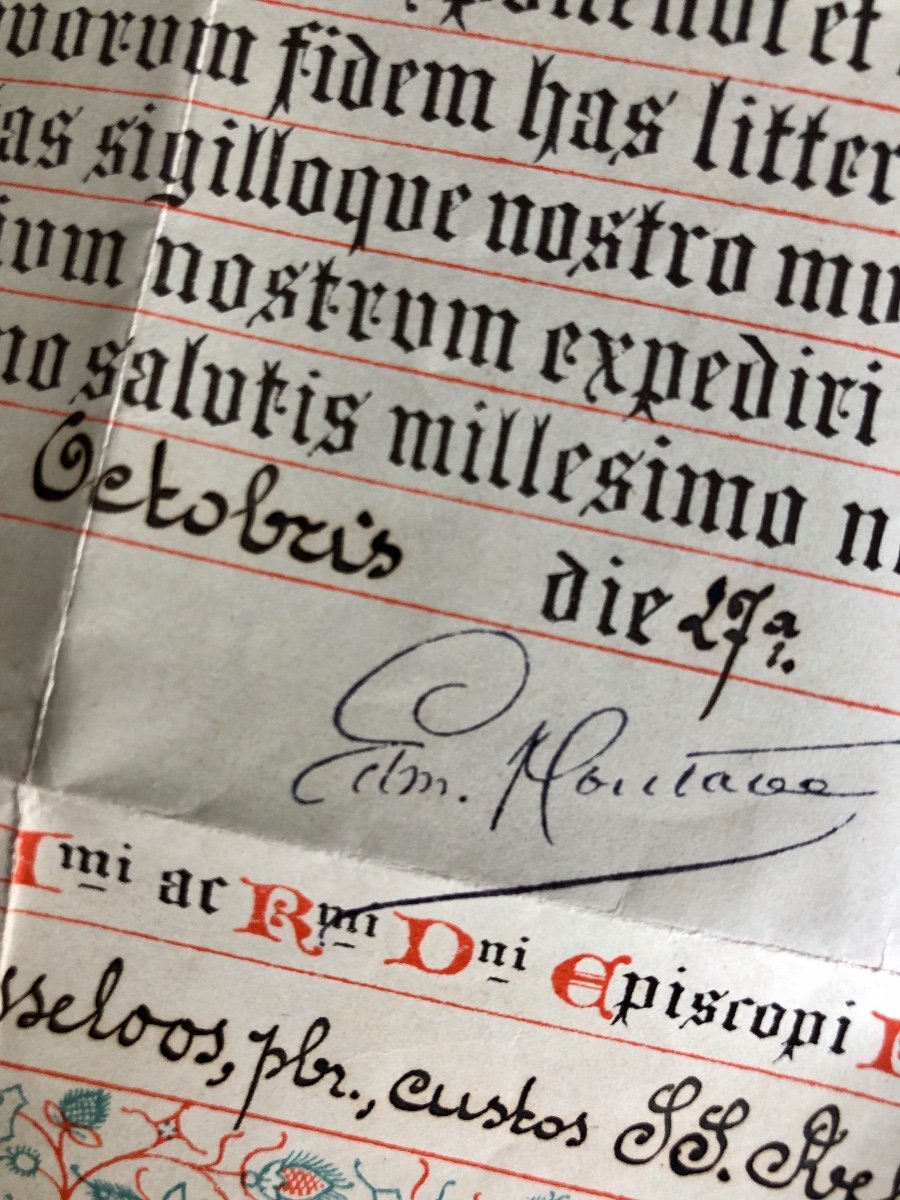 ponendi et
quorum fidem has litter
as sigilloque nostro mu
ium nostrum expediri
no salutis millesimo n
Octobris die 27ª
Edm.
Imi ac Rmi Dni Episcopi
sseloos, pbr., custos SS. Rel